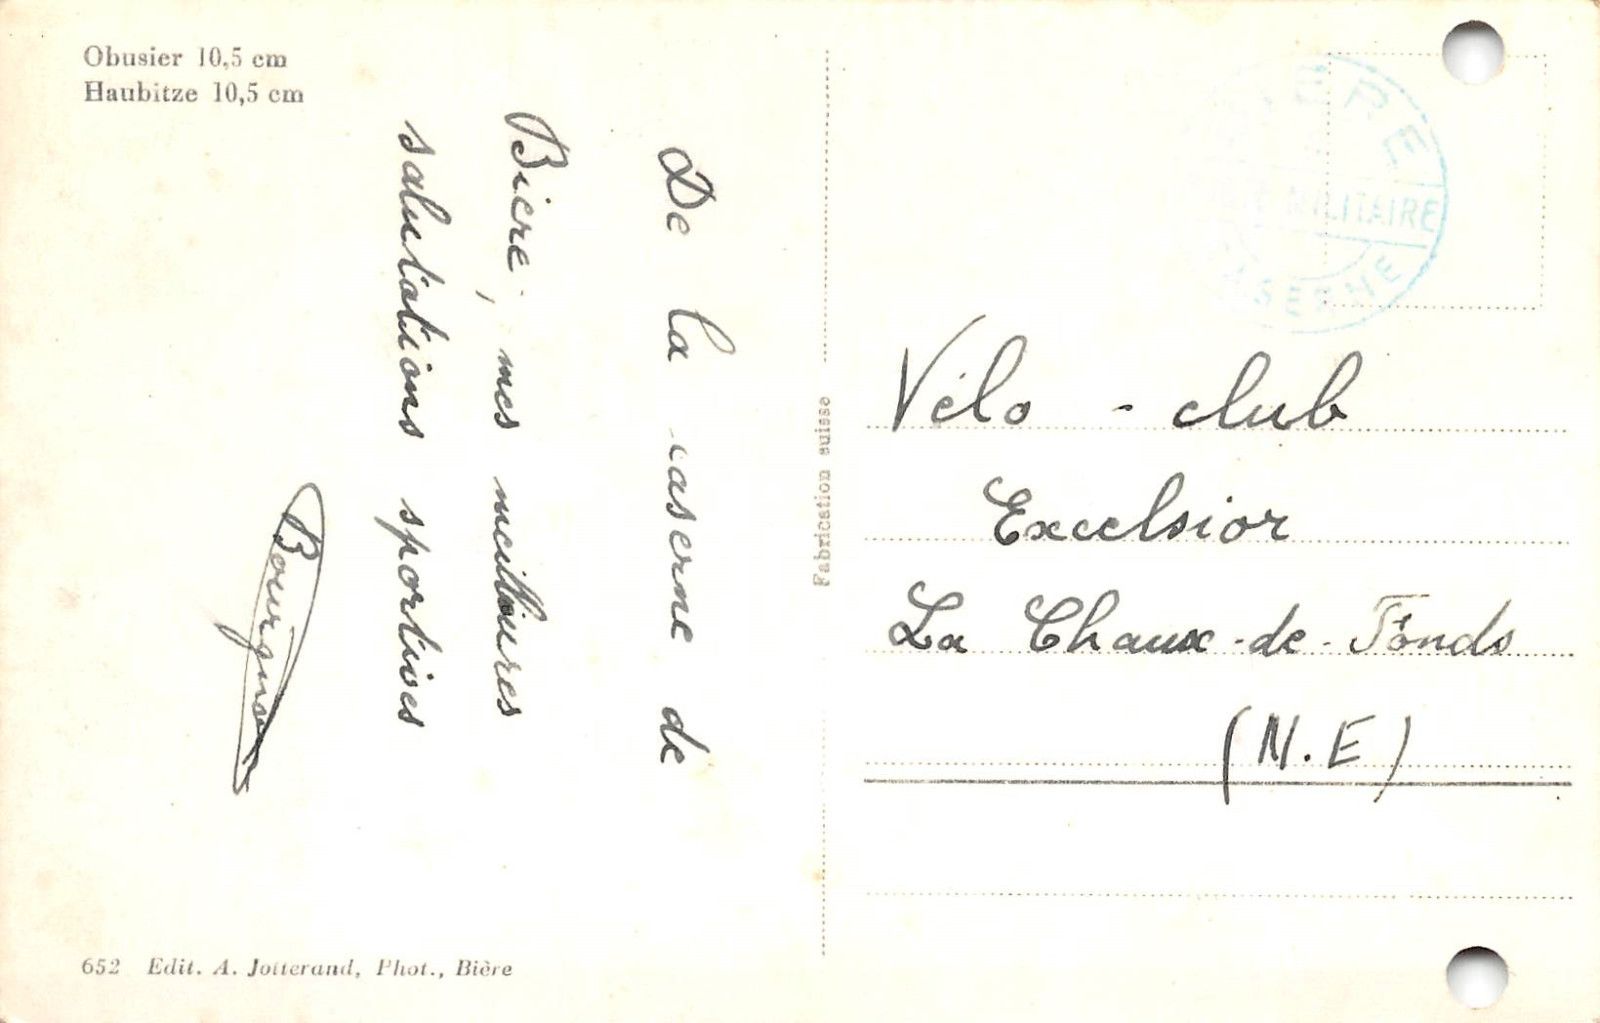 Obusier 10,5 cm
Haubitze 10,5 cm
De la caserne de
Bière, mes meilleures
salutations sportives
652 Edit. A. Jotterand, Phot., Bière
Fabrication suisse
MILITAIRE
Vélo - club
Excelsior
La Chaux-de-Fonds
(N.E)